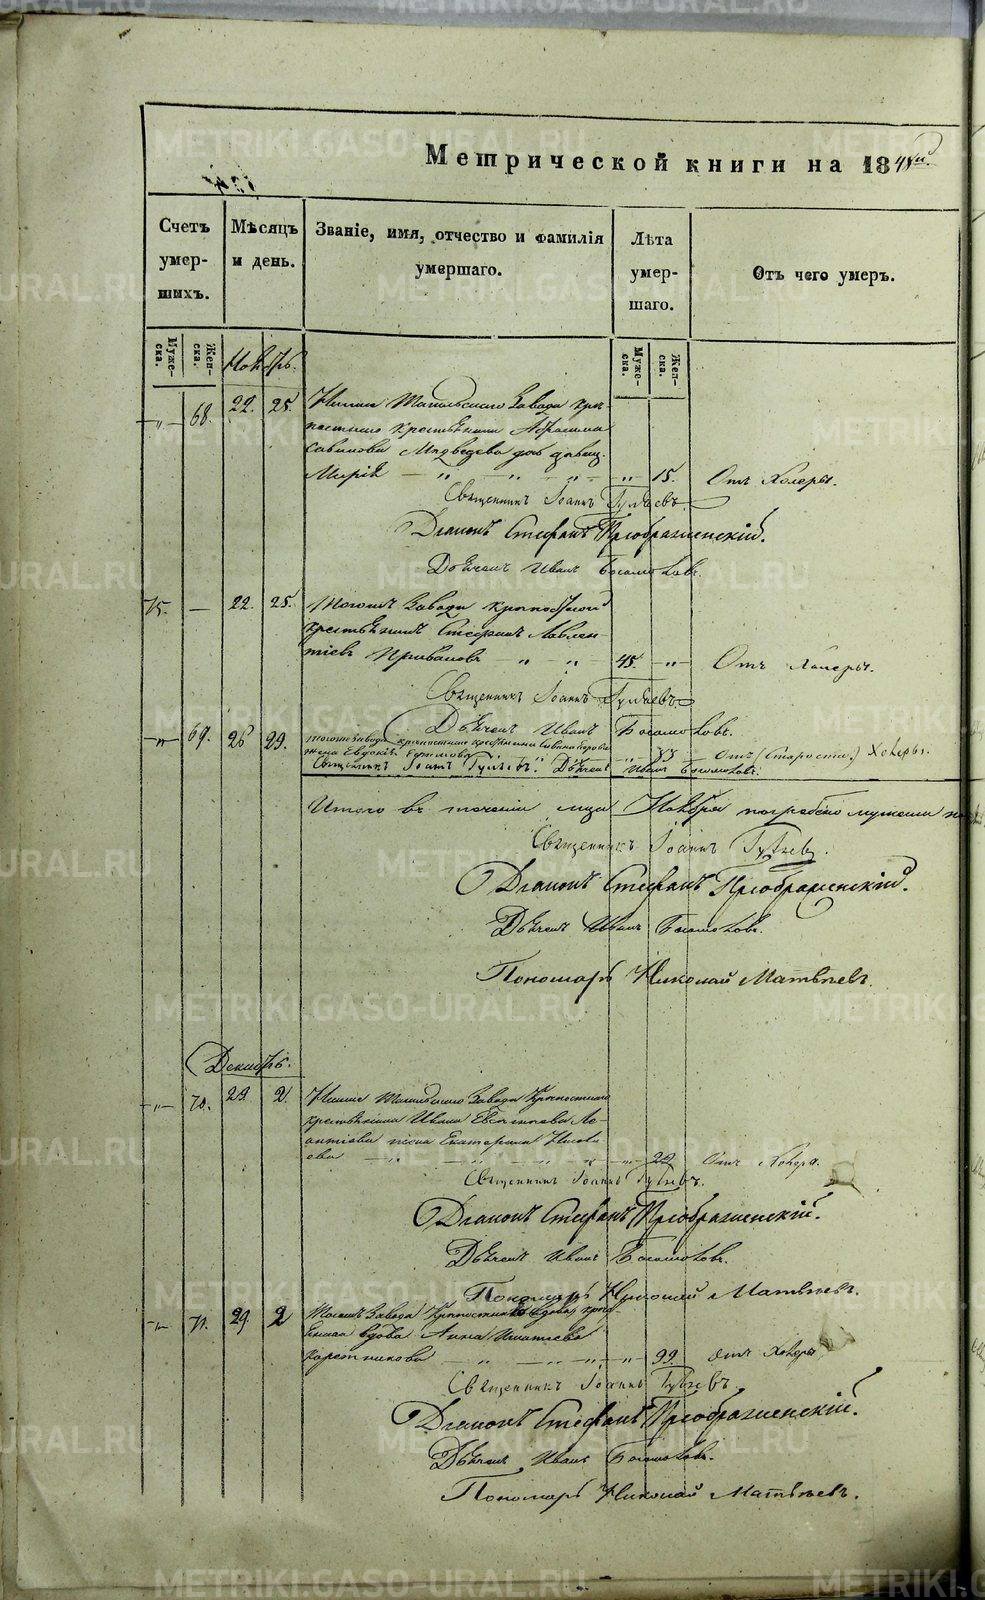 Метрической книги на 1848й.
Счетъ умер-шихъ.
Мѣсяцъ и день.
Званіе, имя, отчество и фамилія умершаго.
Лѣта умер-шаго.
Отъ чего умеръ.
Муже-ска.
Жен-ска.
Ноябрь.
Муже-ска.
Жен-ска.
68. 22. 25. Нижне Тагильскаго Завода крѣ-
постнаго крестьянина
Савинова Медведева дочь девица
Марія 15. Отъ Холеры.
Священникъ Іоаннъ
Діаконъ Стефанъ Преображенскій.
Дьячекъ Иванъ Богомоловъ.
75. 22. 25. Тогожъ Завода крѣпостной
крестьянинъ Стефанъ Лаврен-
тіевъ Приваловъ 45. Отъ Холеры.
Священникъ Іоаннъ
Дьячекъ Иванъ Богомоловъ.
69. 26 29. тогожъ Завода крѣпостнаго крестьянина
жена Евдокія 55 Отъ (Старости) Холеры.
Священникъ Іоаннъ Дьячекъ Иванъ Богомоловъ.
Итого въ теченіи мца Ноября погребено мужеска
Священникъ Іоаннъ
Діаконъ Стефанъ Преображенскій.
Дьячекъ Иванъ Богомоловъ.
Пономарь Николай Матвѣевъ.
Декабрь.
70. 29. 2. Нижне Тагильскаго Завода крѣпостнаго
крестьянина Ивана Ле-
онтіева жена Екатерина
29 Отъ Холеры.
Священникъ Іоаннъ
Діаконъ Стефанъ Преображенскій.
Дьячекъ Иванъ Богомоловъ.
Пономарь Николай Матвѣевъ.
71. 29. 2 Тогожъ Завода
вдова Анна Игнатьева
Каретникова 99. Отъ Холеры
Священникъ Іоаннъ
Діаконъ Стефанъ Преображенскій.
Дьячекъ Иванъ Богомоловъ.
Пономарь Николай Матвѣевъ.
METRIKI.GASO-URAL.RU